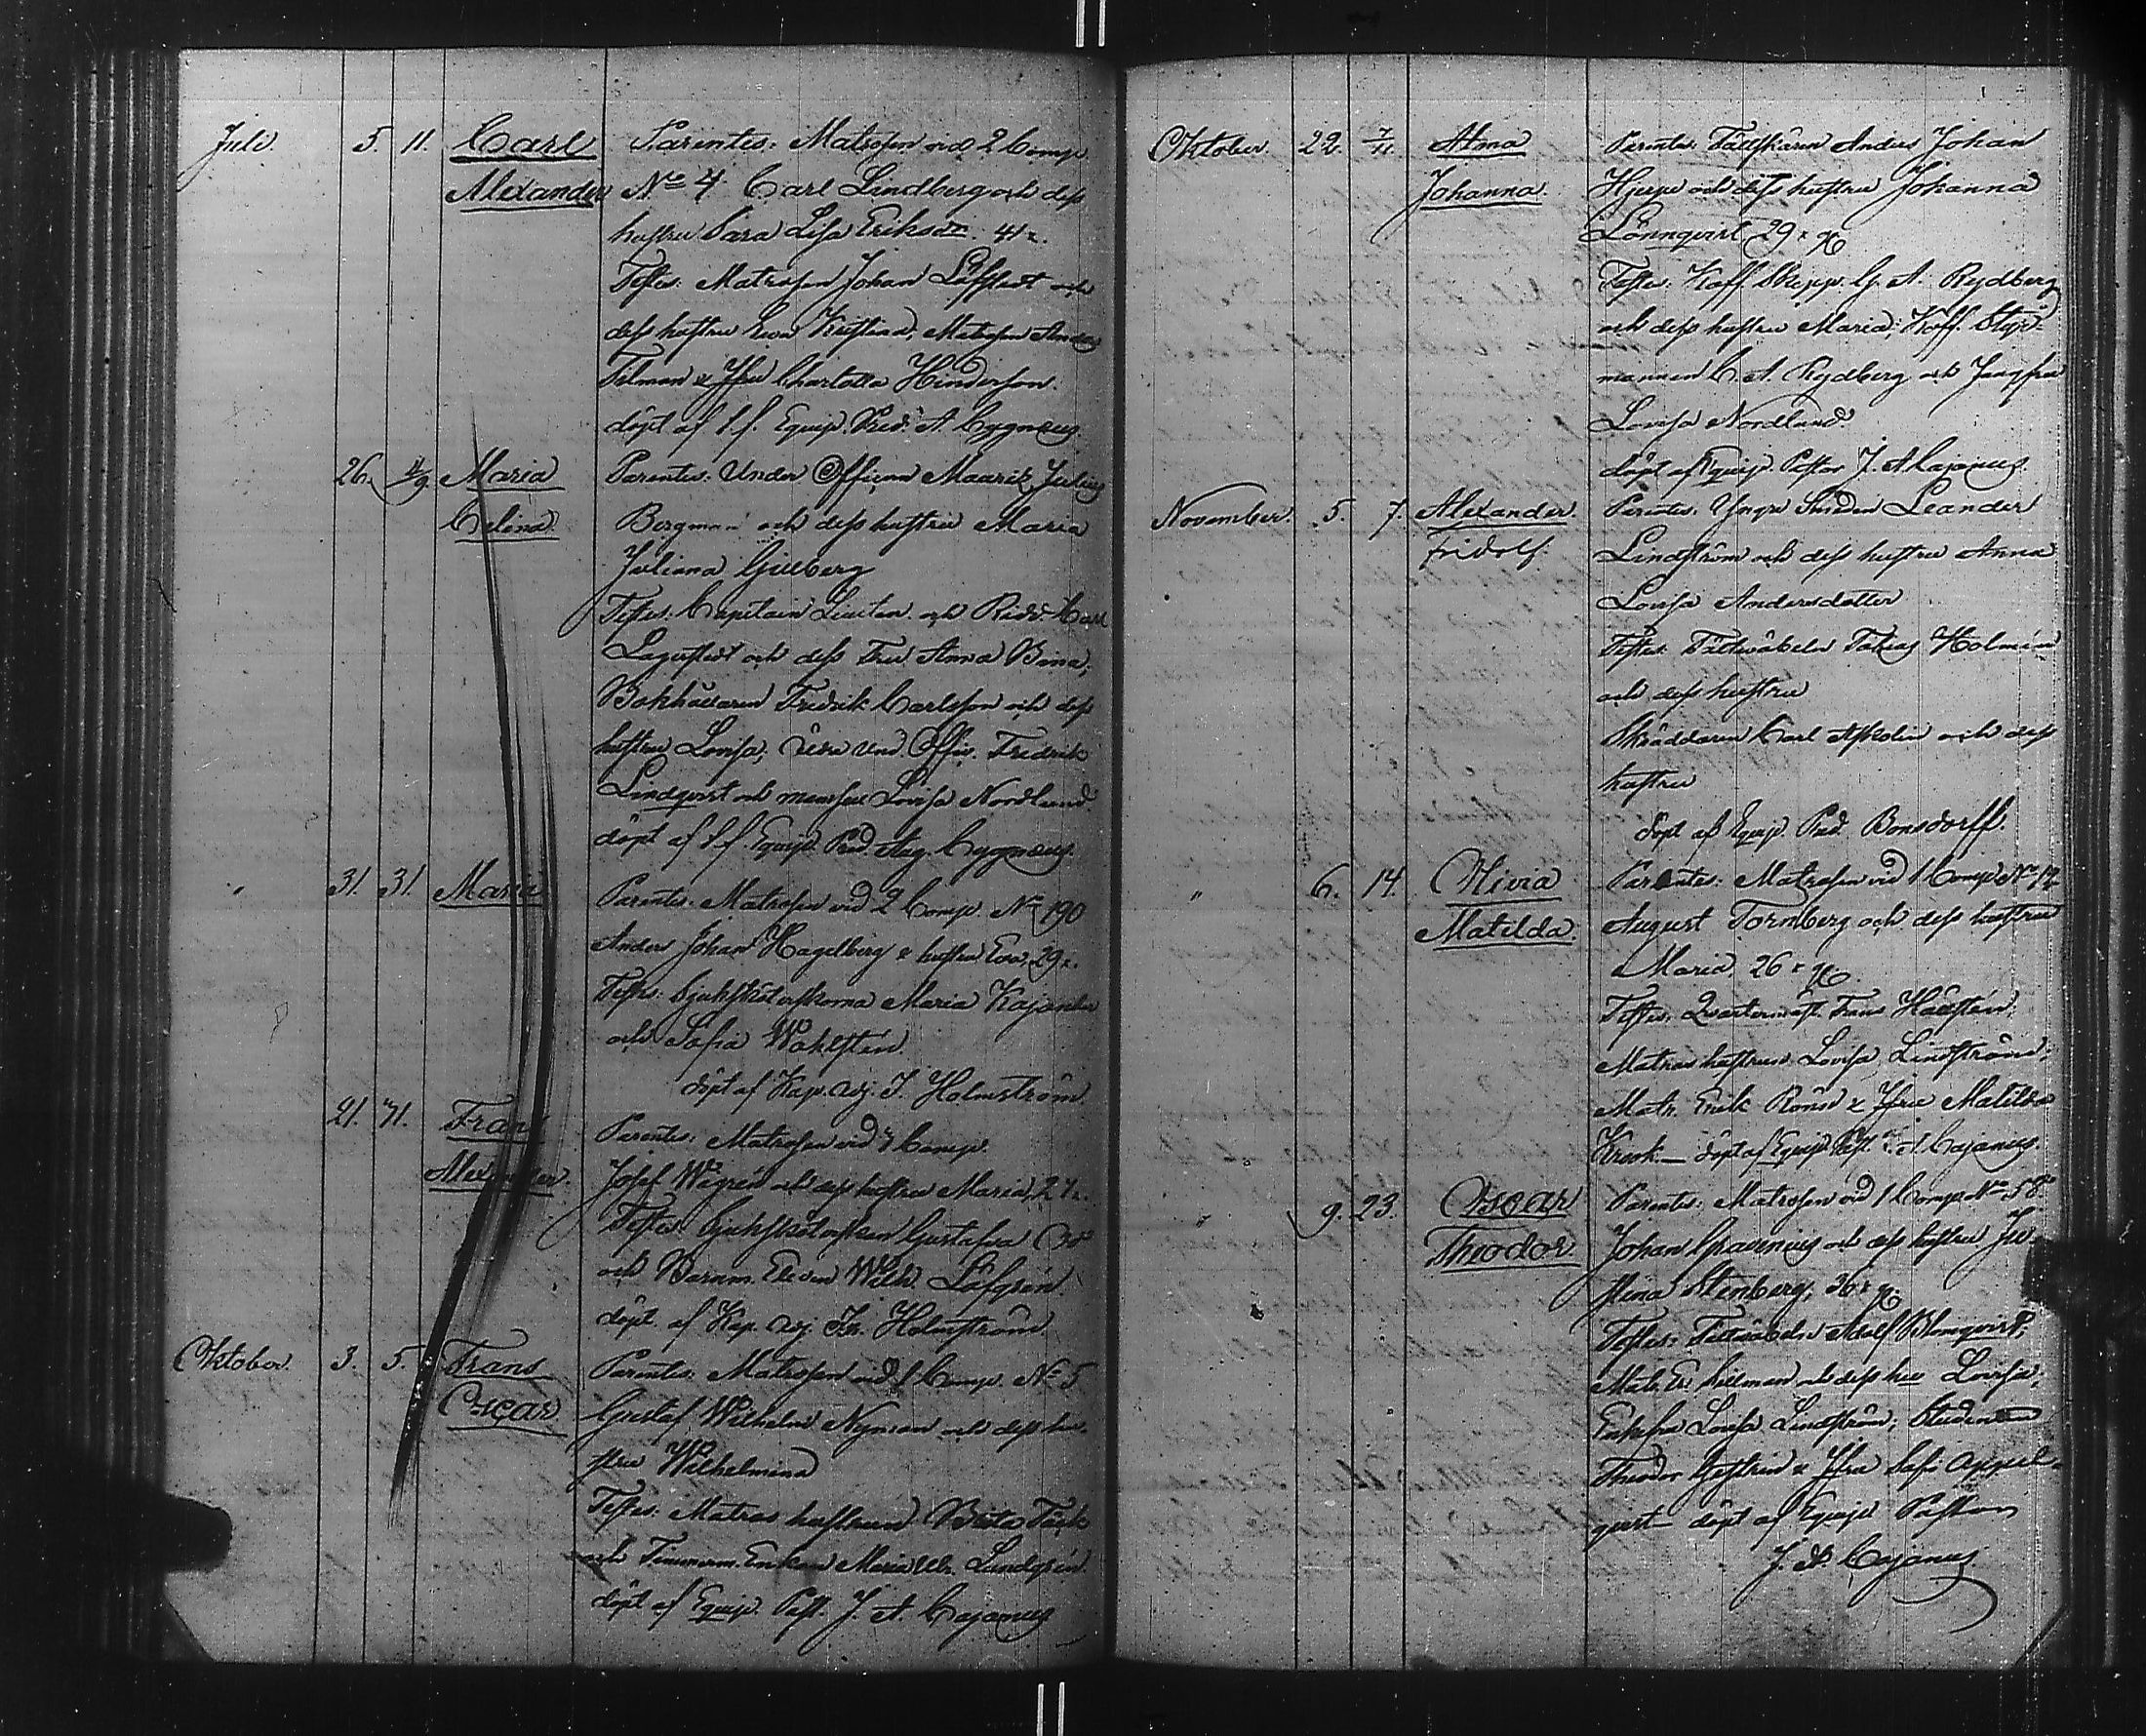 Juli 5. 11. Carl Parentes: Matrosen vid 2 Comp.
Alexander No 4 Carl Lindberg och dess
hustru Sara Lisa Eriksdr. 41
Testes: Matrosen Johan Löfstedt och
dess hustru Eva Kristina, Matrosen Anders
Tilman & Jfru Charlotta Hinderson.
döpt af Equip. Pred. A. Cygnæus.
26. Maria Parentes: Under Officern Maurik Julius
Celina Bergman och dess hustru Maria
Juliana Gilberg
Testes: Capitain Lieuten. och Ridd. Carl
Lagerstedt och dess Fru Anna
Bokhållaren Fredrik Carlsson och dess
hustru Lovisa, Und. Offic. Fredrik
Lindqvist och mamsell Lovisa Nordlund
döpt af Equip. Pred. Aug. Cygnæus.
" 31. 31. Maria Parentes: Matrosen vid 2 Comp. No 190
Anders Johan Hagelberg & hustru Eva, 29
Testes: Sjuksköterskorna Maria Kajander
och Sofia Wahlsten.
döpt af Kap. adj. I. Holmström.
21. Frans Parentes: Matrosen vid Comp.
Alexander. Josef Wegren och dess hustru Maria, 27
Testes: Sjuksköterskan Gustafva
och Barnm. Eleven Wilh. Löfgren.
döpt af Kap. adj. Holmström.
Oktober. 3. 5. Frans Parentes: Matrosen vid 1 Comp. No 5
Oscar Gustaf Wilhelm Nyman och dess hu-
stru Wilhelmina
Testes: Matros hustrun Brita
och Timmerm. Enkan Maria Ulr. Lundgren.
döpt af Equip. Past. J. A. Cajanus
Oktober. 22. 7/11. Alma Parentes: Fältskären Anders Johan
Johanna. Hjerpe och dess hustru Johanna
Lönnqvist 29
Testes: Koff. Skepp. G. A. Rydberg
och dess hustru Maria, Koff. Styr-
mannen C. A. Rydberg och Jungfru
Lovisa Nordlund
döpt af Equip. Pastor J. A. Cajanus.
November. 5. 7. Alexander. Parentes: Yngre Smeden Leander
Fridolf. Lindström och dess hustru Anna
Lovisa Andersdotter
Testes: Fältwäbeln Tobias Holmén
och dess hustru
Skräddaren Carl Askolin och dess
hustru
döpt af Equip. Pred. Bonsdorff.
" 6. 14. Olivia Parentes: Matrosen vid 1 Comp. No
Matilda. August Tornberg och dess hustru
Maria 26
Testes: Qvartermäst. Frans Hällsten,
Matros hustrun Lovisa Lindström,
Matr. Erik & Jfru Matilda
Krook. — döpt af Equip. Past. J. A. Cajanus.
" 9. 23. Oscar Parentes: Matrosen vid 1 Comp. No 58
Theodor. Johan Gravenius och dess hustru Ju-
stina Stenberg, 36
Testes: Fältwäbeln Adolf Blomqvist,
Matr. Er. Hillman och dess hu Lovisa,
Enkefru Lovisa Lindström, Studenten
Theodor & Jfru Sofi Appel-
qvist döpt af Equip. Pastorn
J. A. Cajanus